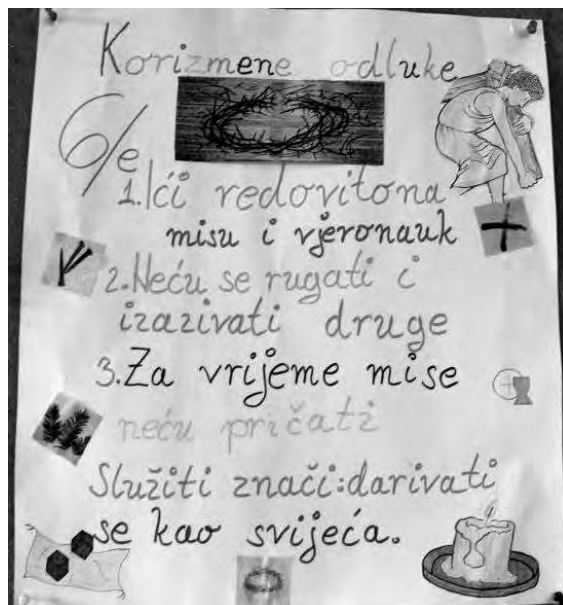 Korizmene odluke
6/e
1. Ići redovitona
misu i vjeronauk
2. Neću se rugati i
izazivati druge
3. Za vrijeme mise
neću pričati
Služiti znači: darivati
se kao svijeća.